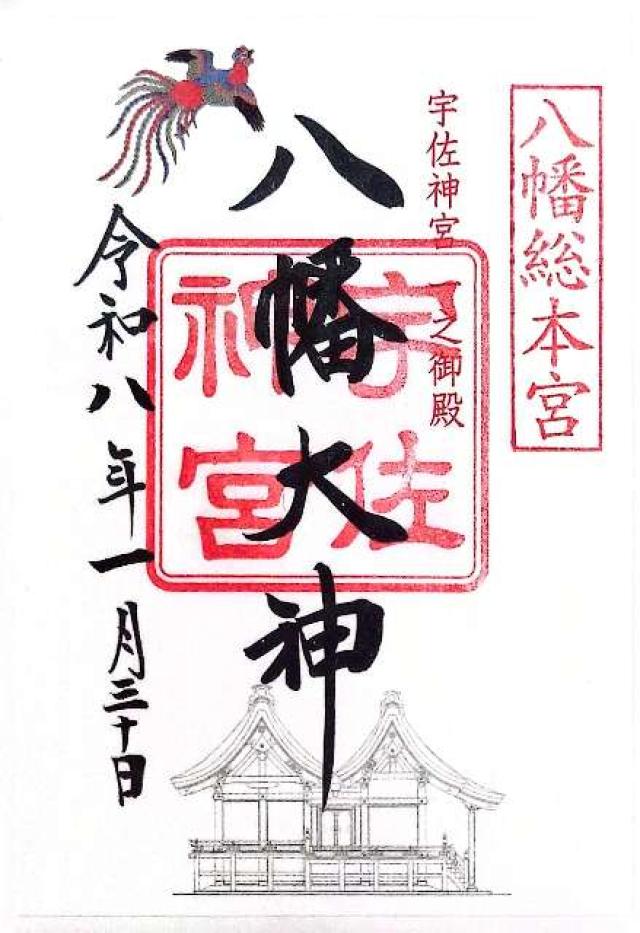 八幡総本宮
宇佐神宮 一之御殿
八幡大神
宇佐
神宮
令和八年一月三十日